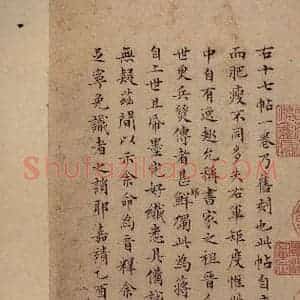 右十七帖一卷乃舊刻也此帖自
而肥瘦不同多失右軍矩度惟
中自有逸趣允稱書家之祖晉
世更兵燹傳者甚鮮獨此為將
自二世且帋墨完好纖悉具備誠
無疑茲間以示余命為音釋余
足寧免識者之誚耶嘉靖乙酉